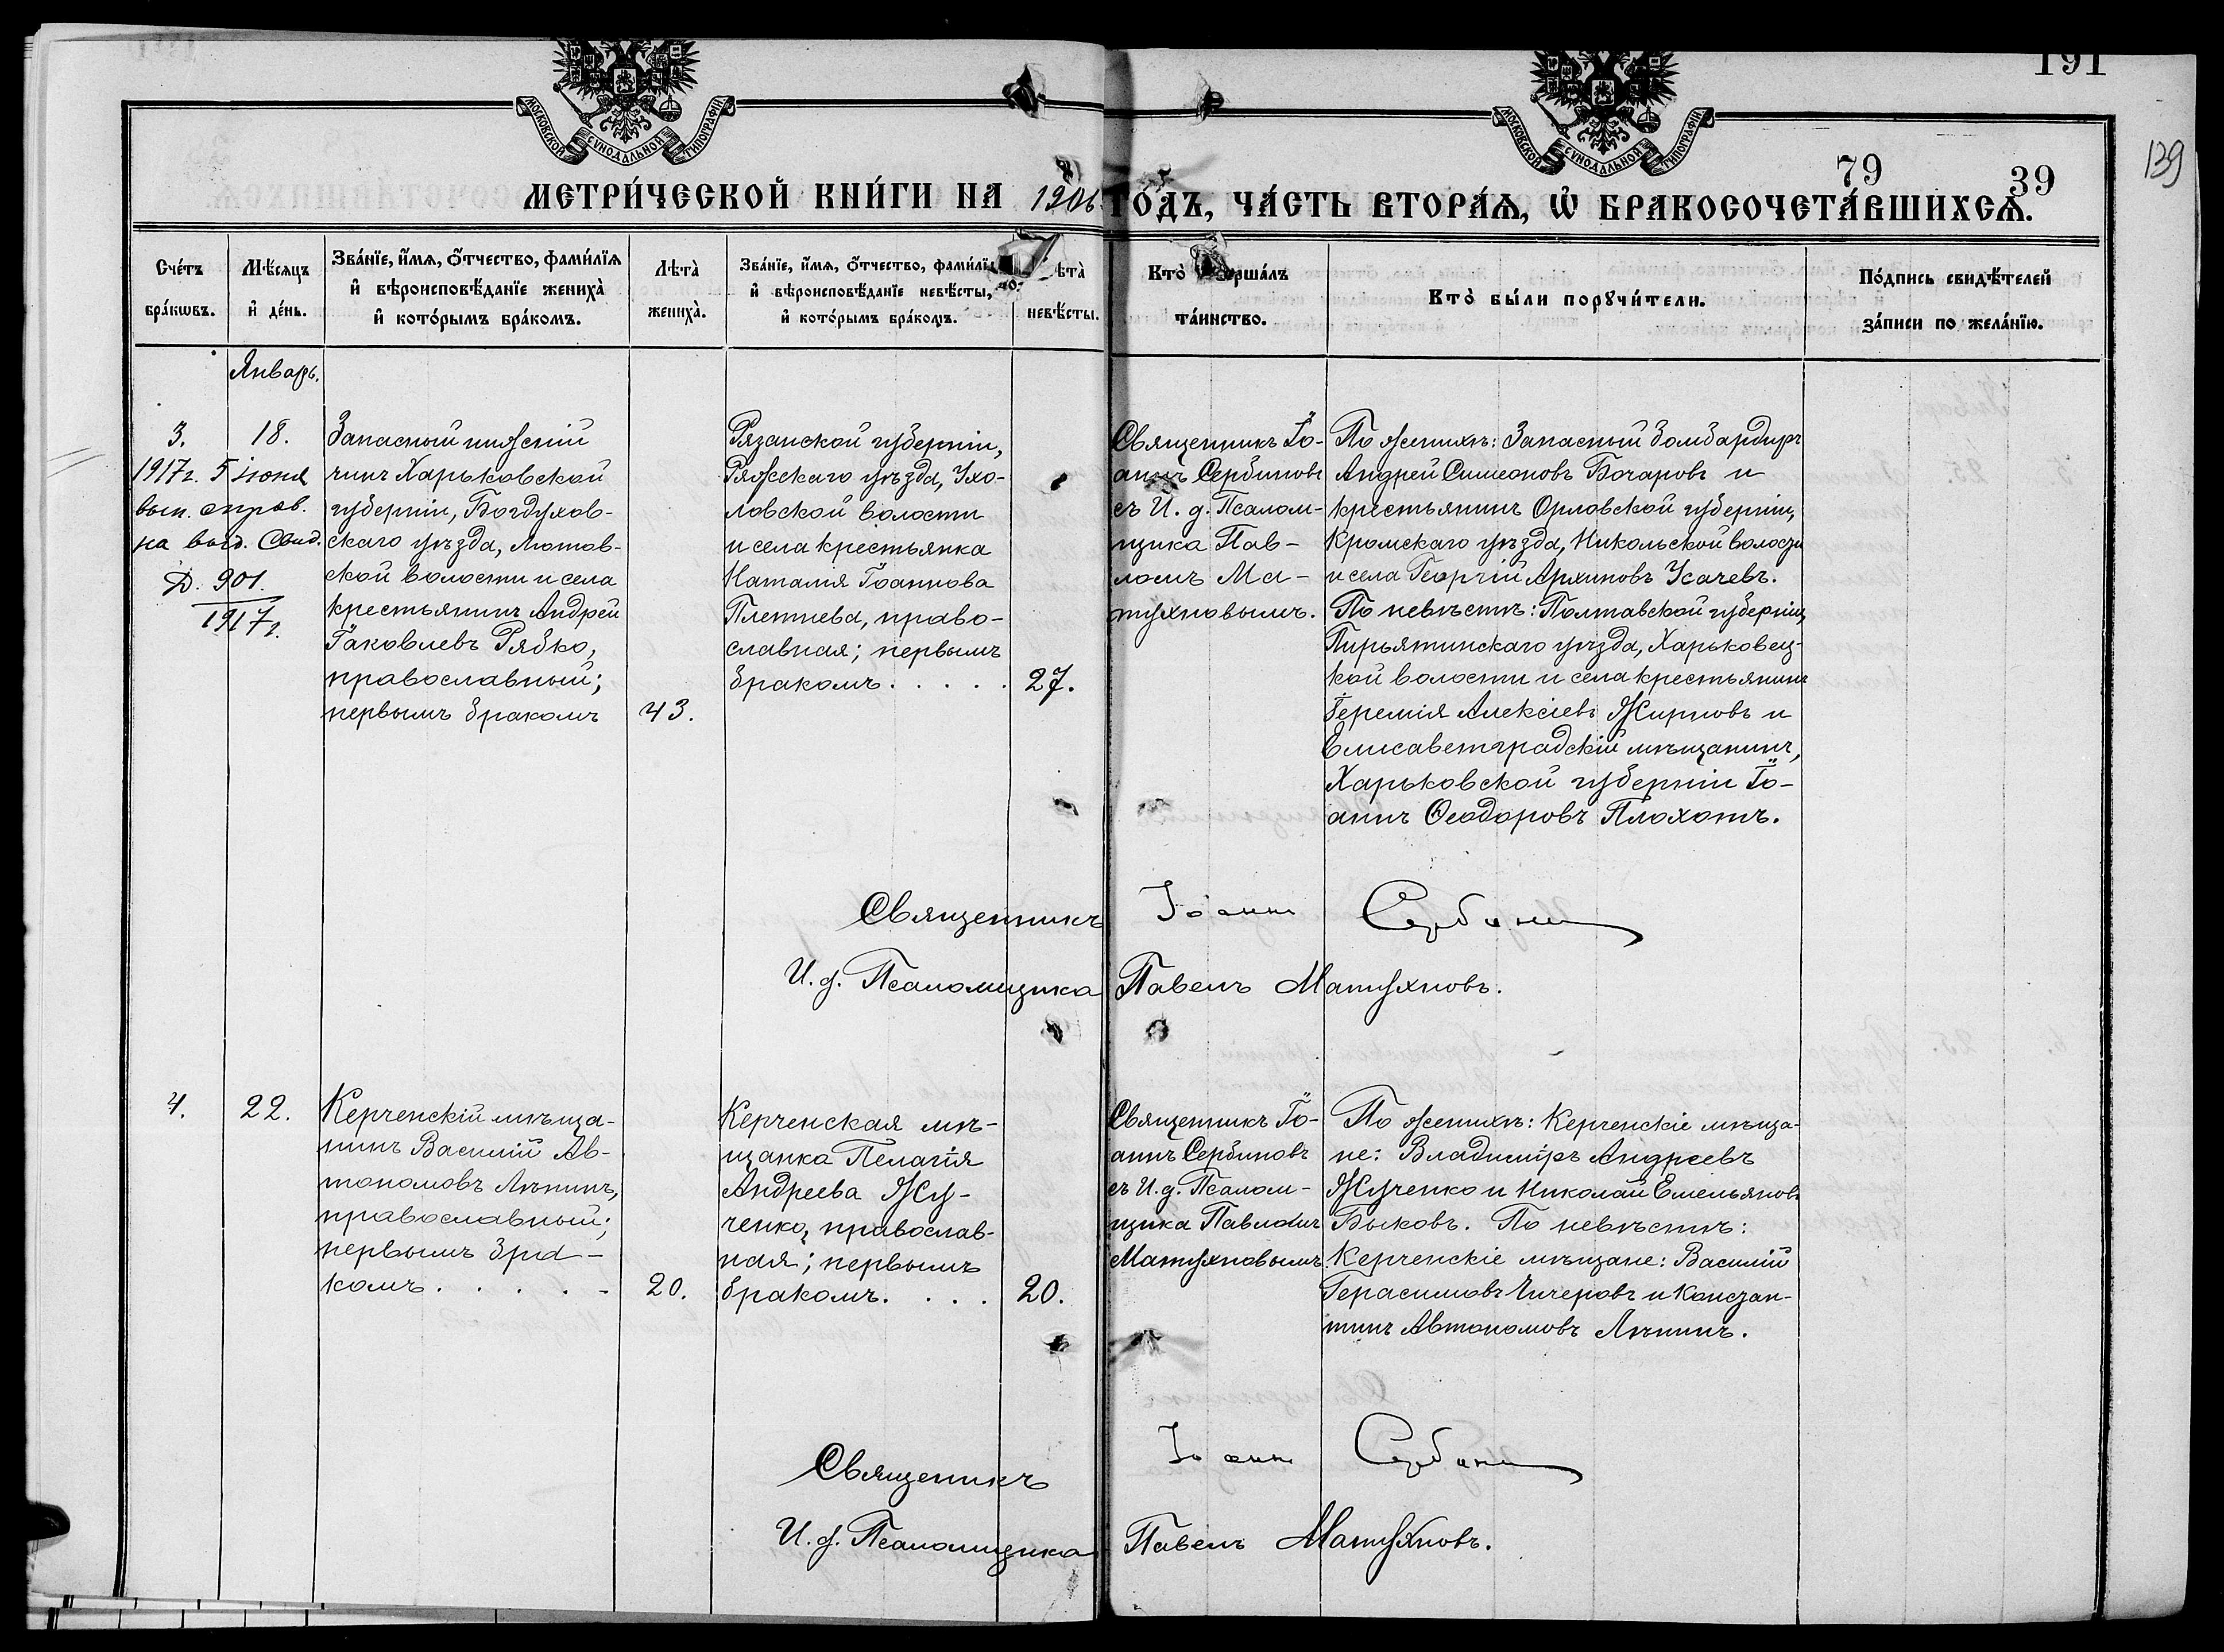 191
139
79
39
МОСКОВСКОЙ СѴНОДАЛЬНОЙ ТИПОГРАФІИ
МОСКОВСКОЙ СѴНОДАЛЬНОЙ ТИПОГРАФІИ
МЕТРИ́ЧЕСКОЙ КНИ́ГИ НА 1906
ГО́ДЪ, ЧА́СТЬ ВТОРА́Ѧ, Ѡ҆ БРАКОСОЧЕТА́ВШИХСѦ.
Сче́тъ бра́кѡвъ.
Мѣ́сяцъ и҆ де́нь.
Зва́нїе, и҆́мя, ѻ҆́тчество, фами́лїя
и҆ вѣроисповѣ́данїе жениха̀
и҆ кото́рымъ бра́комъ.
Лѣта̀ жениха̀.
Зва́нїе, и҆́мя, ѻ҆́тчество, фами́лї
и҆ вѣроисповѣ́данїе невѣ́сты,
и҆ кото́рымъ бра́комъ.
ѣта̀ невѣ́сты.
Кто̀ ершáлъ та́инство.
Кто̀ бы́ли порꙋчи́тели.
По́дпись свидѣ́телей за́писи по жела́нїю.
Январь.
3.
18.
1917 г. 5 іюня
вып. справ.
на выд. Свид.
Д. 901.
1917 г.
Запасный нижній
чинъ Харьковской
губерніи, Богдухов-
скаго уѣзда, Лютов-
ской волости и села
крестьянинъ Андрей
Іаковлевъ Рябко,
православный;
первымъ бракомъ
43.
Рязанской губерніи,
Ряжскаго уѣзда, Ухо-
ловской волости
и села крестьянка
Наталія Іоаннова
Плетнева, право-
славная; первымъ
бракомъ . . . . .
27.
Священникъ Іо-
аннъ Сербиновъ
съ И. д. Псалом-
щика Пав-
ломъ Ма-
тухновымъ.
По женихѣ: Запасный бомбардиръ
Андрей Симеоновъ Бочаровъ и
крестьянинъ Орловской губерніи,
Кромскаго уѣзда, Никольской волости
и села Георгій Архиповъ Усачевъ.
По невѣстѣ: Полтавской губерніи,
Пирятинскаго уѣзда, Харьковец-
кой волости и села крестьянинъ
Іеремія Алексіевъ Жирновъ и
Елисаветградскій мѣщанинъ,
Харьковской губерніи Іо-
аннъ Ѳеодоровъ Плохотъ.
Священникъ Іоаннъ Сербинов
И. д. Псаломщика Павелъ Матухновъ.
4.
22.
Керченскій мѣща-
нинъ Василій Ав-
тономовъ Лѣнинъ,
православный;
первымъ бра-
комъ . . . . .
20.
Керченская мѣ-
щанка Пелагія
Андреева Жу-
ченко, православ-
ная; первымъ
бракомъ. . . .
20.
Священникъ Іо-
аннъ Сербиновъ
съ И. д. Псалом-
щика Павломъ
Матухновымъ.
По женихѣ: Керченскіе мѣща-
не: Владиміръ Андреевъ
Жученко и Николай Емельяновъ
Быковъ. По невѣстѣ:
Керченскіе мѣщане: Василій
Герасимовъ Чичеровъ и Констан-
тинъ Автономовъ Лѣнинъ.
Священникъ Іоаннъ Сербинов
И. д. Псаломщика Павелъ Матухновъ.